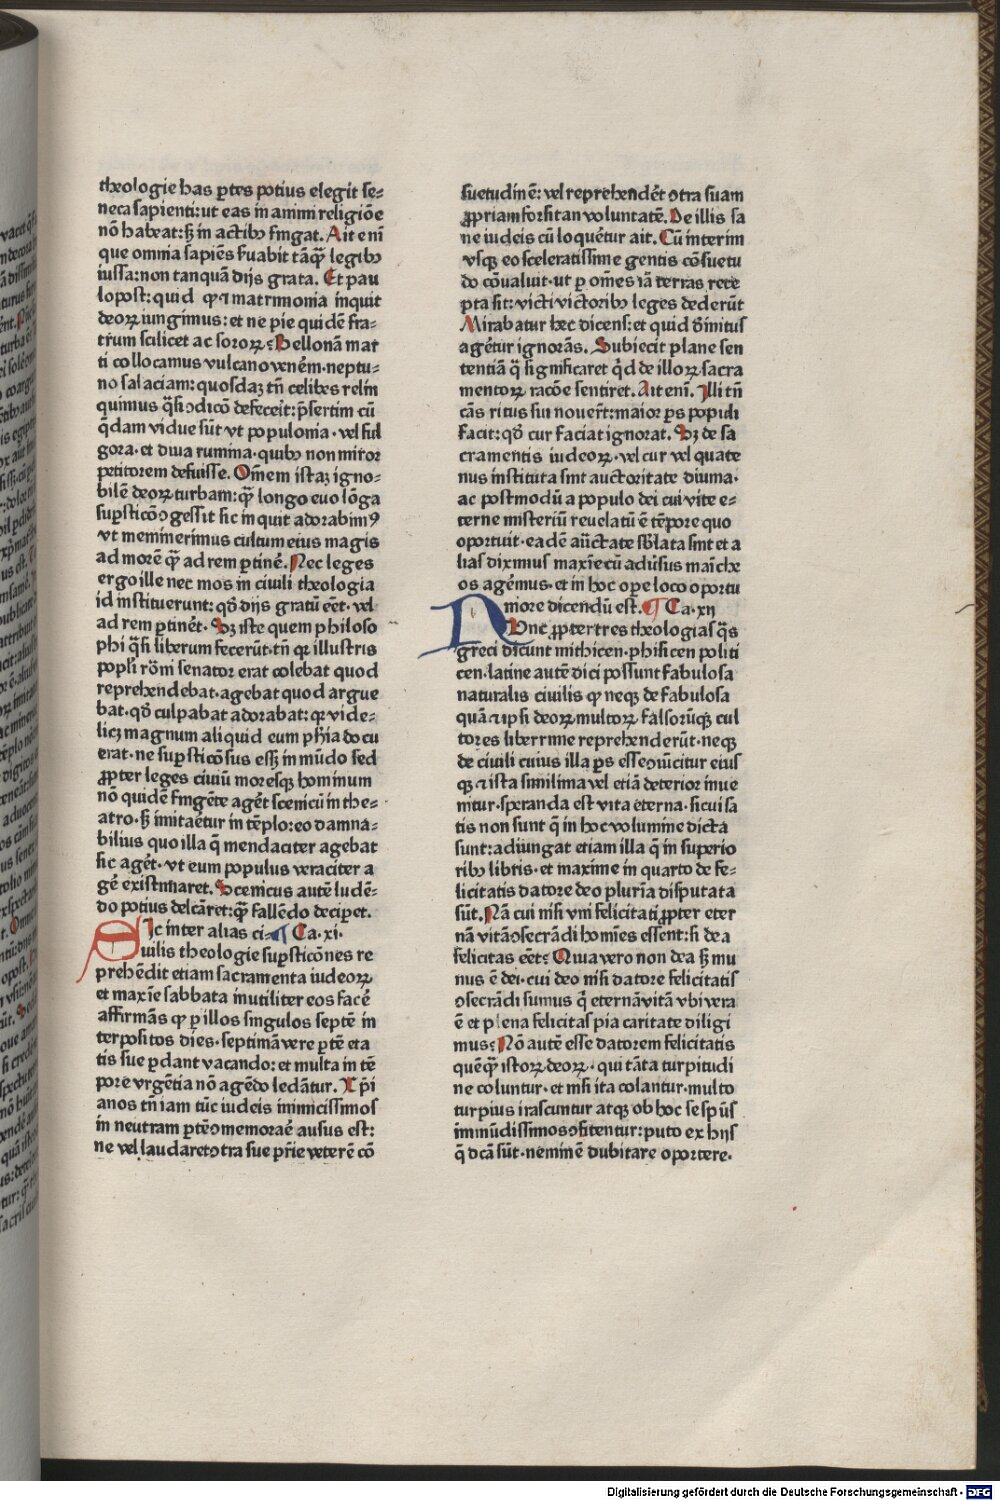 theologie has ꝑtes potius elegit se⸗
neca sapienti: ut eas in animi religiōe
nō habeat: sꝫ in actibꝰ fingat. Ait enī
que omnia sapiēs ẜuabit tāꝙ̄ legibꝰ
iussa: non tanquā dijs grata. Et pau
lopost: quid ꝙ ⁊ matrimonia inquit
deoꝝ iungimus: et ne pie quidē fra⸗
trum scilicet ac soroꝝ? Bellonā mar
ti collocamus vulcano venēm. neptu⸗
no salaciam: quosdaꝫ tn̄ celibes relin
quimus q̄si ↄdicō defeceit: p̄sertim cū
q̄dam vidue sūt vt populonia. vel ful
gora. et diua rumina. quibꝰ non miror
petitorem defuisse. Om̄em istaꝫ igno⸗
bilē deoꝝ turbam: quā longo euo lōga
suꝑsticō ↄgessit sic inquit adorabimꝰ
vt meminerimus cultum eius magis
ad morē ꝙ̄ ad rem ꝑtinē. Nec leges
ergo ille nec mos in ciuili theologia
id instituerunt: qđ dijs gratū eēt. vel
ad rem ꝑtinēt. Sꝫ iste quem philoso
phi q̄si liberum fecerūt. tn̄ qꝛ illustris
popli rōm̄i senator erat colebat quod
reprehendebat. agebat quod argue
bat. qđ culpabat adorabat: qꝛ vide⸗
licꝫ magnum aliquid eum ph̄ia docu
erat. ne suꝑsticōsus essꝫ in mūdo sed
ꝓpter leges ciuiū moresqꝫ hominum
nō quidē fingēte agēt scenicū in the⸗
atro. sꝫ imitaētur in tēplo: eo damna⸗
bilius quo illa q̄ mendaciter agebat
sic agēt. vt eum populus veraciter a
gē existimaret. Scenicus autē ludē⸗
do potius delcāret: ꝙ̄ fallēdo deciꝑet.
Hic inter alias ci⸗ ¶ Ca. xi.
uilis theologie suꝑsticōnes re
prehēdit etiam sacramenta iudeoꝝ
et maxīe sabbata inutiliter eos facē
affirmās ꝙ ꝑ illos singulos septē in
terpositos dies. septimā vere ꝑtē eta
tis sue ꝑdant vacando: et multa in tē
pore vrgētia nō agēdo ledātur. Xp̄i
anos tn̄ iam tūc iudeis inimicissimos
in neutram ꝑtē ↄmemoraē ausus est:
ne vel laudaret ↄtra sue pr̄ie veterē cō
suetudinē: vel reprehendēt ↄtra suam
ꝓpriam forsitan voluntatē. De illis sa
ne iudeis cū loquētur ait. Cū interim
vsqꝫ eo sceleratissime gentis cōsuetu
do cōualuit. ut ꝑ om̄es iā terras rece
pta sit: victi victoribꝰ leges dederūt
Mirabatur hec dicens: et quid diuinitus
agētur ignorās. Subiecit plane sen
tentiā q̄ significaret qd̄ de illoꝝ sacra
mentoꝝ racōe sentiret. Ait eni. Illi tn̄
cās ritus sui nouer̄t: maior ꝑs populi
facit: qđ cur faciat ignorat. Sꝫ de sa
cramentis iudeoꝝ. vel cur vel quate
nus instituta sint auctoritate diuina.
ac postmodū a populo dei cui vite e⸗
terne misteriū reuelatū ē tēpore quo
oportuit. eadē aūctate sblata sint et a
lias diximus maxīe cū aduersus maniche
os agēmus. et in hoc oꝑe loco oportu
niore dicendū est. ¶ Ca. xii
Nunc ꝓpter tres theologias q̄s
greci dicunt mithicen. phisicen politi
cen. latine autē dici possunt fabulosa
naturalis ciuilis ꝙ neqꝫ de fabulosa
quā ⁊ ipsi deoꝝ multoꝝ falsorūqꝫ cul
tores liberrime reprehenderūt. neqꝫ
de ciuili cuius illa ꝑs esse ↄuīcitur eius
qꝫ ⁊ ista simillima vel etiā deterior inue
nitur. speranda est vita eterna. si cui sa
tis non sunt q̄ in hoc volumine dicta
sunt: adiungat etiam illa q̄ in superio
ribꝰ libris. et maxime in quarto de fe⸗
licitatis datore deo plurīa disputata
sūt. Nā cui nisi vni felicitati ꝓpter eter
nā vitā ↄsecrādi hoīes essent: si dea
felicitas eēt? Quia vero non dea sꝫ mu
nus ē dei. cui deo nisi datore felicitatis
ↄsecrādi sumus q̄ eternā vitā vbi vera
ē et plena felicitas pia caritate diligi
mus? Nō autē esse datorem felicitatis
quēꝙ̄ istoꝝ deoꝝ. qui tāta turpitudi
ne coluntur. et nisi ita colantur. multo
turpius irascuntur atqꝫ ob hoc se sp̄ūs
immūdissimos ↄfitentur: puto ex hijs
q̄ dcā sūt. neminē dubitare oportere.
Digitalisierung gefördert durch die Deutsche Forschungsgemeinschaft - DFG